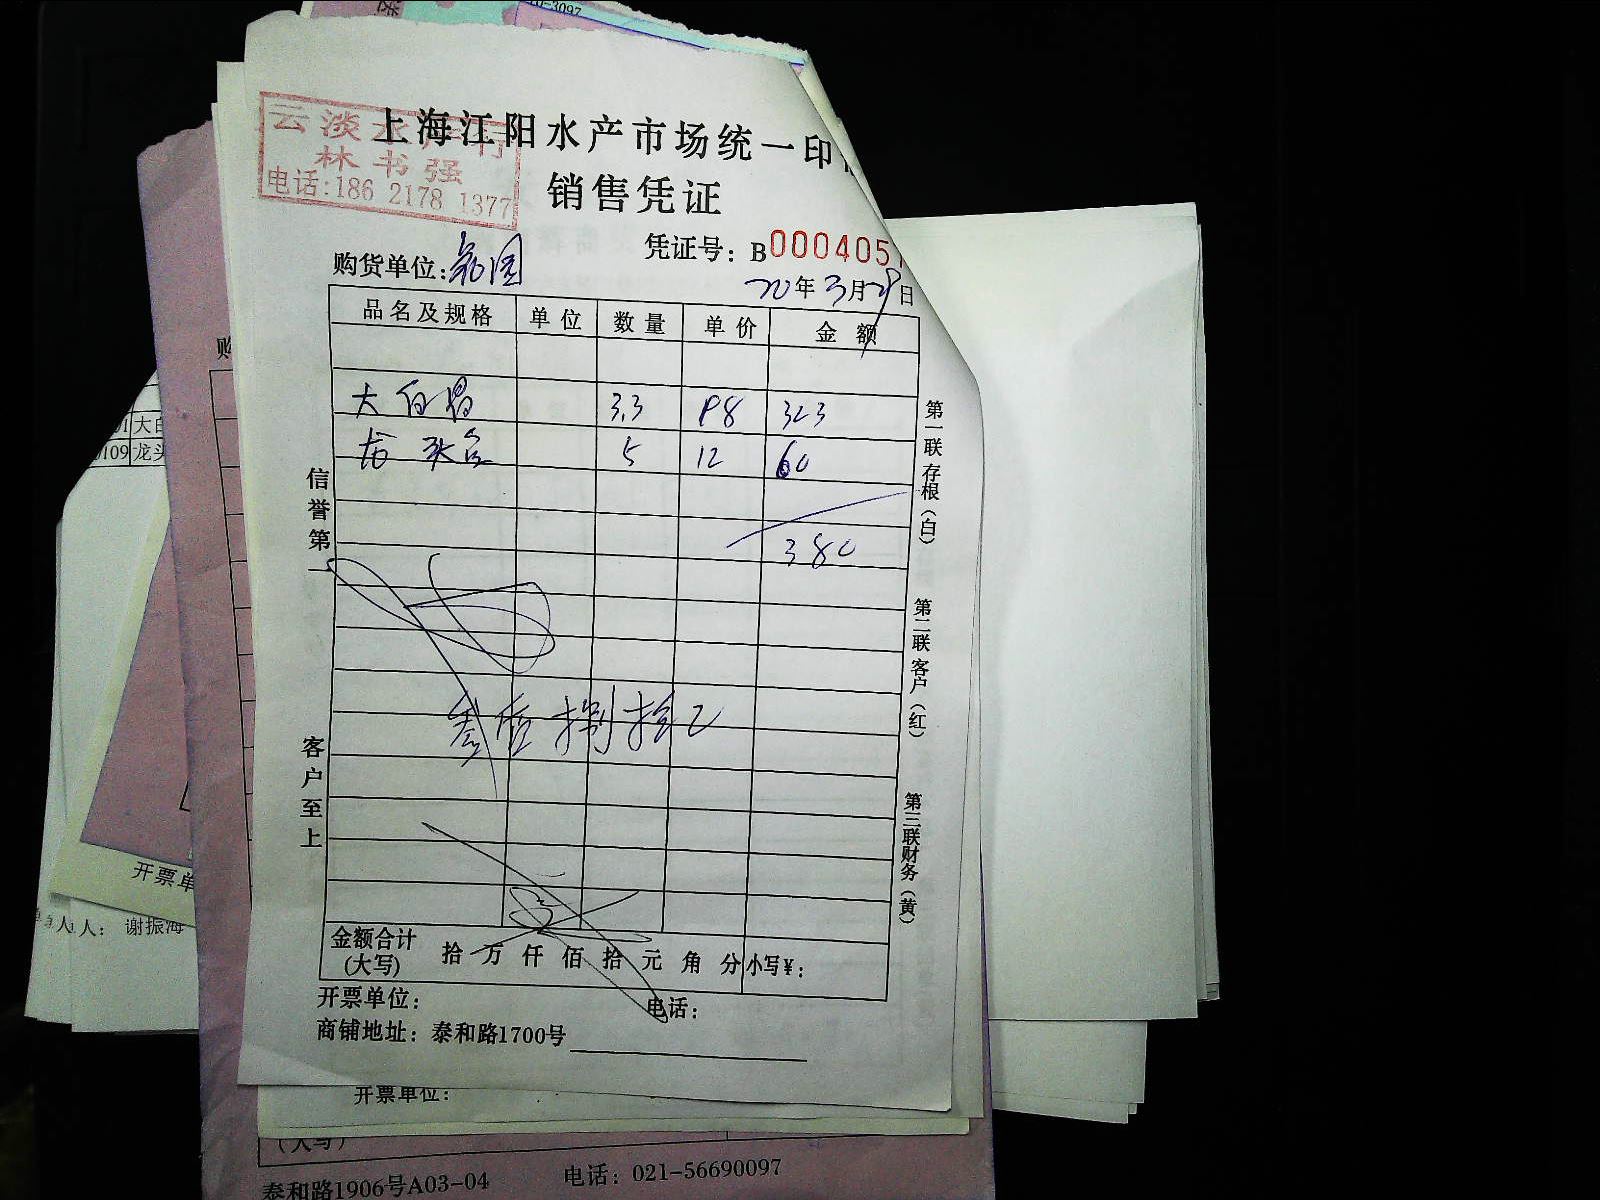 0-3097
上海江阳水产市场统一印
云淡水产行
林书强
电话:186 2178 1377
销售凭证
凭证号: B000405
购货单位:
20年3月29日
品名及规格 单位 数量 单价 金额
大白鲳 3.3 98 323
龙头 5 12 60
380
叁佰捌拾元
信誉第一
客户至上
第一联存根(白)
第二联客户(红)
第三联财务(黄)
金额合计(大写) 拾 万 仟 佰 拾 元 角 分 小写¥:
开票单位: 电话:
商铺地址: 泰和路1700号
购
大白
109 龙头
开票单
人人: 谢振海
开票单位:
(大写)
泰和路1906号A03-04 电话: 021-56690097